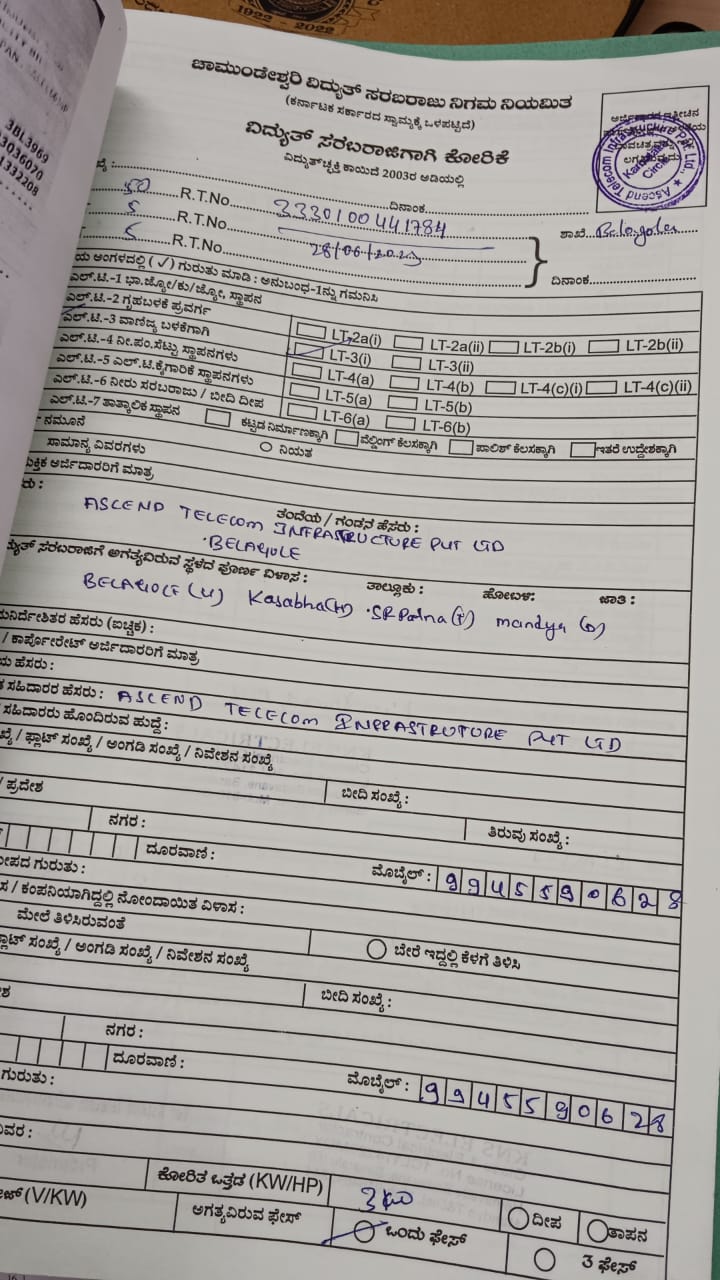 1922 - 2022
3BL3969
3036070
1332208
ಚಾಮುಂಡೇಶ್ವರಿ ವಿದ್ಯುತ್ ಸರಬರಾಜು ನಿಗಮ ನಿಯಮಿತ
(ಕರ್ನಾಟಕ ಸರ್ಕಾರದ ಸ್ವಾಮ್ಯಕ್ಕೆ ಒಳಪಟ್ಟಿದೆ)
ವಿದ್ಯುತ್ ಸರಬರಾಜಿಗಾಗಿ ಕೋರಿಕೆ
ವಿದ್ಯುತ್‌ಚ್ಛಕ್ತಿ ಕಾಯಿದೆ 2003ರ ಅಡಿಯಲ್ಲಿ
Ascend Telecom Infrastructure Pvt. Ltd.,
Karnataka Circle
ದಿನಾಂಕ
50 R.T.No 3330100441784
5 R.T.No
5 R.T.No 28/06/2023
ಶಾಖೆ Belagola
ದಿನಾಂಕ
ಅಂಗಳದಲ್ಲಿ (✓) ಗುರುತು ಮಾಡಿ : ಅನುಬಂಧ-1ನ್ನು ಗಮನಿಸಿ
ಎಲ್.ಟಿ.-1 ಭಾ.ಜ್ಯೋ/ಕು/ಜ್ಯೋ, ಸ್ಥಾಪನ
ಎಲ್.ಟಿ.-2 ಗೃಹಬಳಕೆ ಪ್ರವರ್ಗ LT-2a(i) LT-2a(ii) LT-2b(i) LT-2b(ii)
ಎಲ್.ಟಿ.-3 ವಾಣಿಜ್ಯ ಬಳಕೆಗಾಗಿ LT-3(i) LT-3(ii)
ಎಲ್.ಟಿ.-4 ನೀ.ಪಂ.ಸೆಟ್ಟು ಸ್ಥಾಪನಗಳು LT-4(a) LT-4(b) LT-4(c)(i) LT-4(c)(ii)
ಎಲ್.ಟಿ.-5 ಎಲ್.ಟಿ.ಕೈಗಾರಿಕೆ ಸ್ಥಾಪನಗಳು LT-5(a) LT-5(b)
ಎಲ್.ಟಿ.-6 ನೀರು ಸರಬರಾಜು / ಬೀದಿ ದೀಪ LT-6(a) LT-6(b)
ಎಲ್.ಟಿ.-7 ತಾತ್ಕಾಲಿಕ ಸ್ಥಾಪನ ಕಟ್ಟಡ ನಿರ್ಮಾಣಕ್ಕಾಗಿ ವೆಲ್ಡಿಂಗ್ ಕೆಲಸಕ್ಕಾಗಿ ಪಾಲಿಶ್ ಕೆಲಸಕ್ಕಾಗಿ ಇತರೆ ಉದ್ದೇಶಕ್ಕಾಗಿ
ನಮೂನೆ ನಿಯತ
ಸಾಮಾನ್ಯ ವಿವರಗಳು
ಅರ್ಜಿದಾರರಿಗೆ ಮಾತ್ರ
ತಂದೆಯ / ಗಂಡನ ಹೆಸರು :
ASCEND TELECOM INFRASTRUCTURE PVT LTD
BELAGOLE
ಸರಬರಾಜಿಗೆ ಅಗತ್ಯವಿರುವ ಸ್ಥಳದ ಪೂರ್ಣ ವಿಳಾಸ : ತಾಲ್ಲೂಕು : ಹೋಬಳಿ: ಜಾತಿ :
BELAGOLE (V) Kasabha (H) SR Patna (T) mandya (D)
ಹೆಸರು (ಐಚ್ಛಿಕ) :
/ ಕಾರ್ಪೋರೇಟ್ ಅರ್ಜಿದಾರರಿಗೆ ಮಾತ್ರ
ಹೆಸರು :
ಸಹಿದಾರರ ಹೆಸರು : ASCEND TELECOM INFRASTRUTURE PVT LTD
ಸಹಿದಾರರು ಹೊಂದಿರುವ ಹುದ್ದೆ :
/ ಫ್ಲಾಟ್ ಸಂಖ್ಯೆ / ಅಂಗಡಿ ಸಂಖ್ಯೆ / ನಿವೇಶನ ಸಂಖ್ಯೆ
ಬೀದಿ ಸಂಖ್ಯೆ :
/ ಪ್ರದೇಶ ನಗರ : ತಿರುವು ಸಂಖ್ಯೆ :
ದೂರವಾಣಿ : ಮೊಬೈಲ್ : 9945590628
ಗುರುತು :
/ ಕಂಪನಿಯಾಗಿದ್ದಲ್ಲಿ ನೋಂದಾಯಿತ ವಿಳಾಸ :
ಮೇಲೆ ತಿಳಿಸಿರುವಂತೆ ಬೇರೆ ಇದ್ದಲ್ಲಿ ಕೆಳಗೆ ತಿಳಿಸಿ
ಸಂಖ್ಯೆ / ಅಂಗಡಿ ಸಂಖ್ಯೆ / ನಿವೇಶನ ಸಂಖ್ಯೆ
ಬೀದಿ ಸಂಖ್ಯೆ :
ನಗರ :
ದೂರವಾಣಿ : ಮೊಬೈಲ್ : 9945590628
ಗುರುತು :
ಕೋರಿತ ಒತ್ತಡ (KW/HP) ದೀಪ ತಾಪನ
(V/KW) ಅಗತ್ಯವಿರುವ ಫೇಸ್ ಒಂದು ಫೇಸ್ 3 ಫೇಸ್